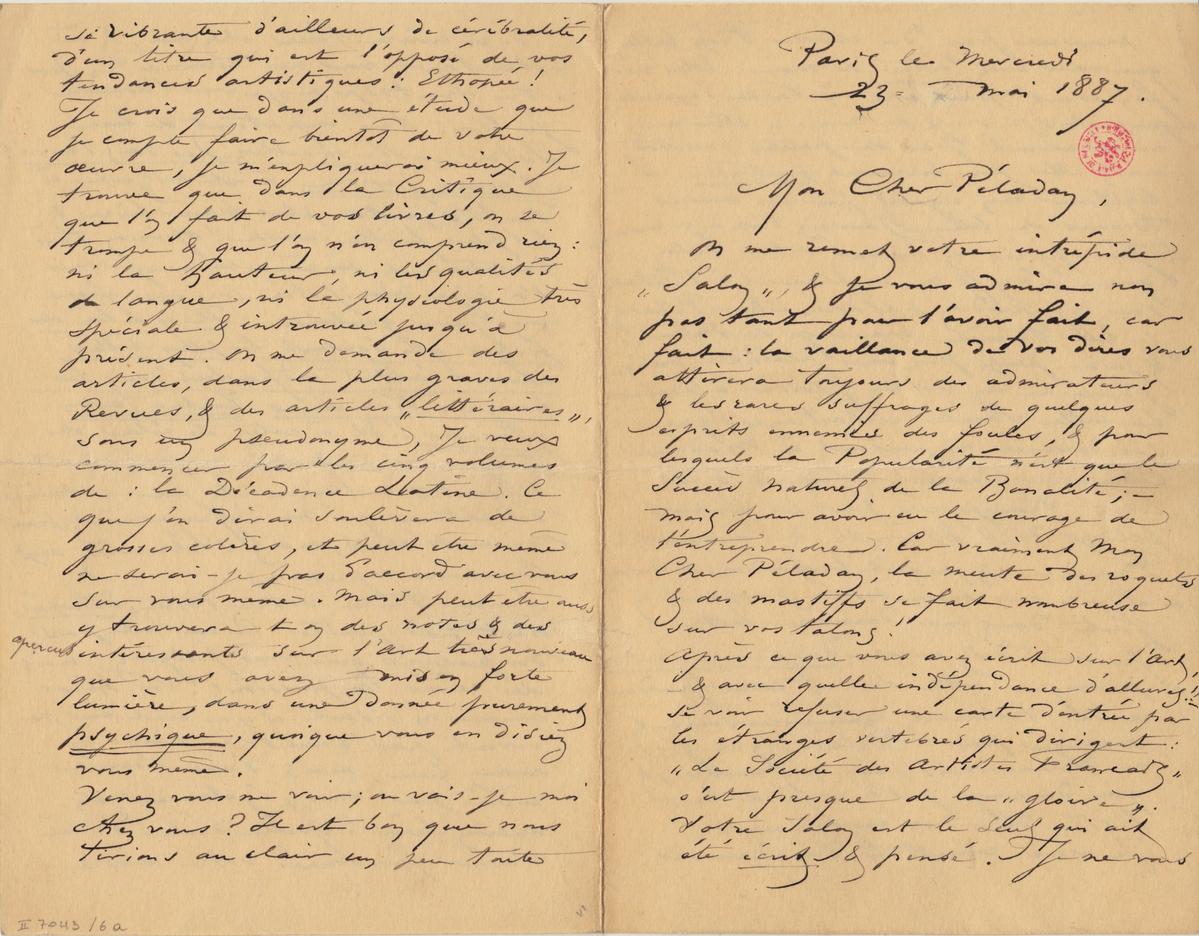 Paris le Mercredi
23 = Mai 1887.
Mon Cher Péladan,
On me remet votre intrépide
„Salon„, & je vous admire non
pas tant pour l'avoir fait, car
fait : la vaillance de vos dires vous
attirera toujours des admirateurs
& les rares suffrages de quelques
esprits ennemis des foules, & pour
lesquels la Popularité n'est que le
Succès naturel de la Banalité; —
mais pour avoir eu le courage de
l'entreprendre. Car vraiment Mon
Cher Péladan, la meute des roquets
& des mastiffs se fait nombreuse
sur vos talons!
Après ce que vous avez écrit sur l'Art,
& avec quelle indépendance d'allures!
se voir refuser une carte d'entrée par
les étranges vertébrés qui dirigent :
„La Société des Artistes Français„
c'est presque de la „gloire„.
Votre Salon est le seul qui ait
été écrit & pensé. Je ne vous
si vibrante d'ailleurs de cérébralité,
d'un titre qui est l'opposé de vos
tendances artistiques : Ethopée!
Je crois que dans une étude que
je compte faire bientôt de votre
œuvre, je m'expliquerai mieux. Je
trouve que dans la Critique
que l'on fait de vos livres, on se
trompe & que l'on n'en comprend rien :
ni la hauteur, ni les qualités
de langue, ni la physiologie très
spéciale & introuvée jusqu'à
présent. On me demande des
articles, dans la plus graves des
Revues, & des articles „littéraires„,
sous un pseudonyme, Je veux
commencer par les cinq volumes
de : la Décadence Latine. Ce
que j'en dirai soulèvera de
grosses colères, et peut être même
ne serai-je pas d'accord avec vous
sur vous même. Mais peut être aussi
y trouvera t on des notes & des
aperçus intéressants sur l'Art très nouveau
que vous avez mis en forte
lumière, dans une donnée purement
psychique, quoique vous en disiez
vous même.
Venez vous me voir; ou vais-je moi
chez vous? Il est bon que nous
tirions au clair un peu toute
II 7043/6a